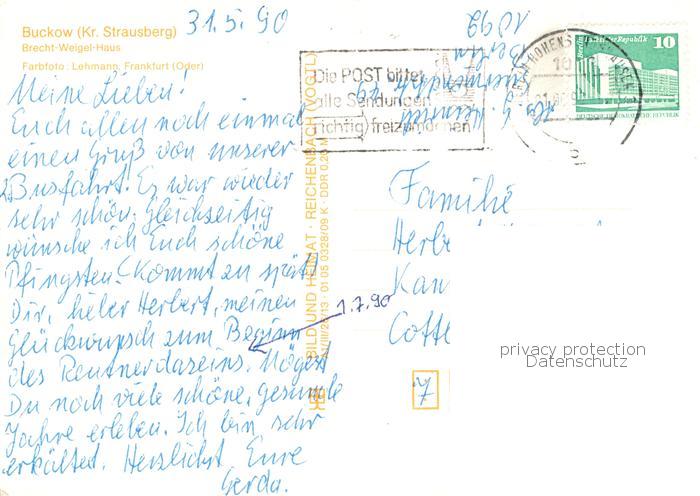 Buckow (Kr. Strausberg)
Brecht-Weigel-Haus
Farbfoto: Lehmann, Frankfurt (Oder)
31.5.90
Meine Lieben!
Euch allen noch einmal
einen Gruß von unserer
2. Busfahrt. Es war wieder
sehr schön. Gleichzeitig
wünsche ich Euch schöne
Pfingsten! (Kommt zu spät)
Dir, lieber Herbert, meinen
Glückwunsch zum Beginn
des Rentnerdaseins. Mögest
Du noch viele schöne, gesunde
Jahre erleben. Ich bin sehr
erkältet. Herzlichst Eure
Gerda.
1.7.90
BILD UND HEIMAT · REICHENBACH (VOGTL)
01 05 0328/09 K · DDR 0,20 M
Die POST bittet
alle Sendungen
richtig freizumachen
1092
Berlin
10
DEUTSCHE DEMOKRATISCHE REPUBLIK
Familie
Herb
Kan
Cottb
7
privacy protection
Datenschutz